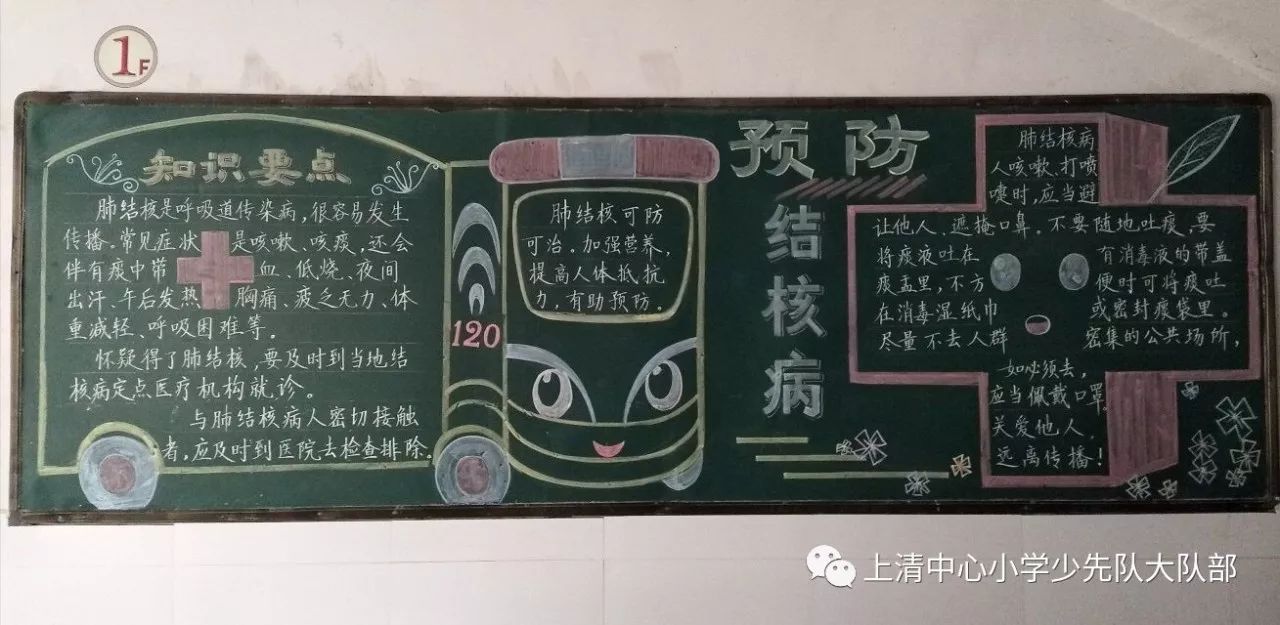 1F
知识要点
肺结核是呼吸道传染病，很容易发生
传播。常见症状是咳嗽、咳痰，还会
伴有痰中带血、低烧、夜间
出汗、午后发热、胸痛、疲乏无力、体
重减轻、呼吸困难等。
怀疑得了肺结核，要及时到当地结
核病定点医疗机构就诊。
与肺结核病人密切接触
者，应及时到医院去检查排除。
120
肺结核可防
可治。加强营养，
提高人体抵抗
力，有助预防。
预防
结
核
病
肺结核病
人咳嗽、打喷
嚏时，应当避
让他人、遮掩口鼻。不要随地吐痰，要
将痰液吐在有消毒液的带盖
痰盂里，不方便时可将痰吐
在消毒湿纸巾或密封痰袋里。
尽量不去人群密集的公共场所，
如必须去，
应当佩戴口罩。
关爱他人，
远离传播！
上清中心小学少先队大队部